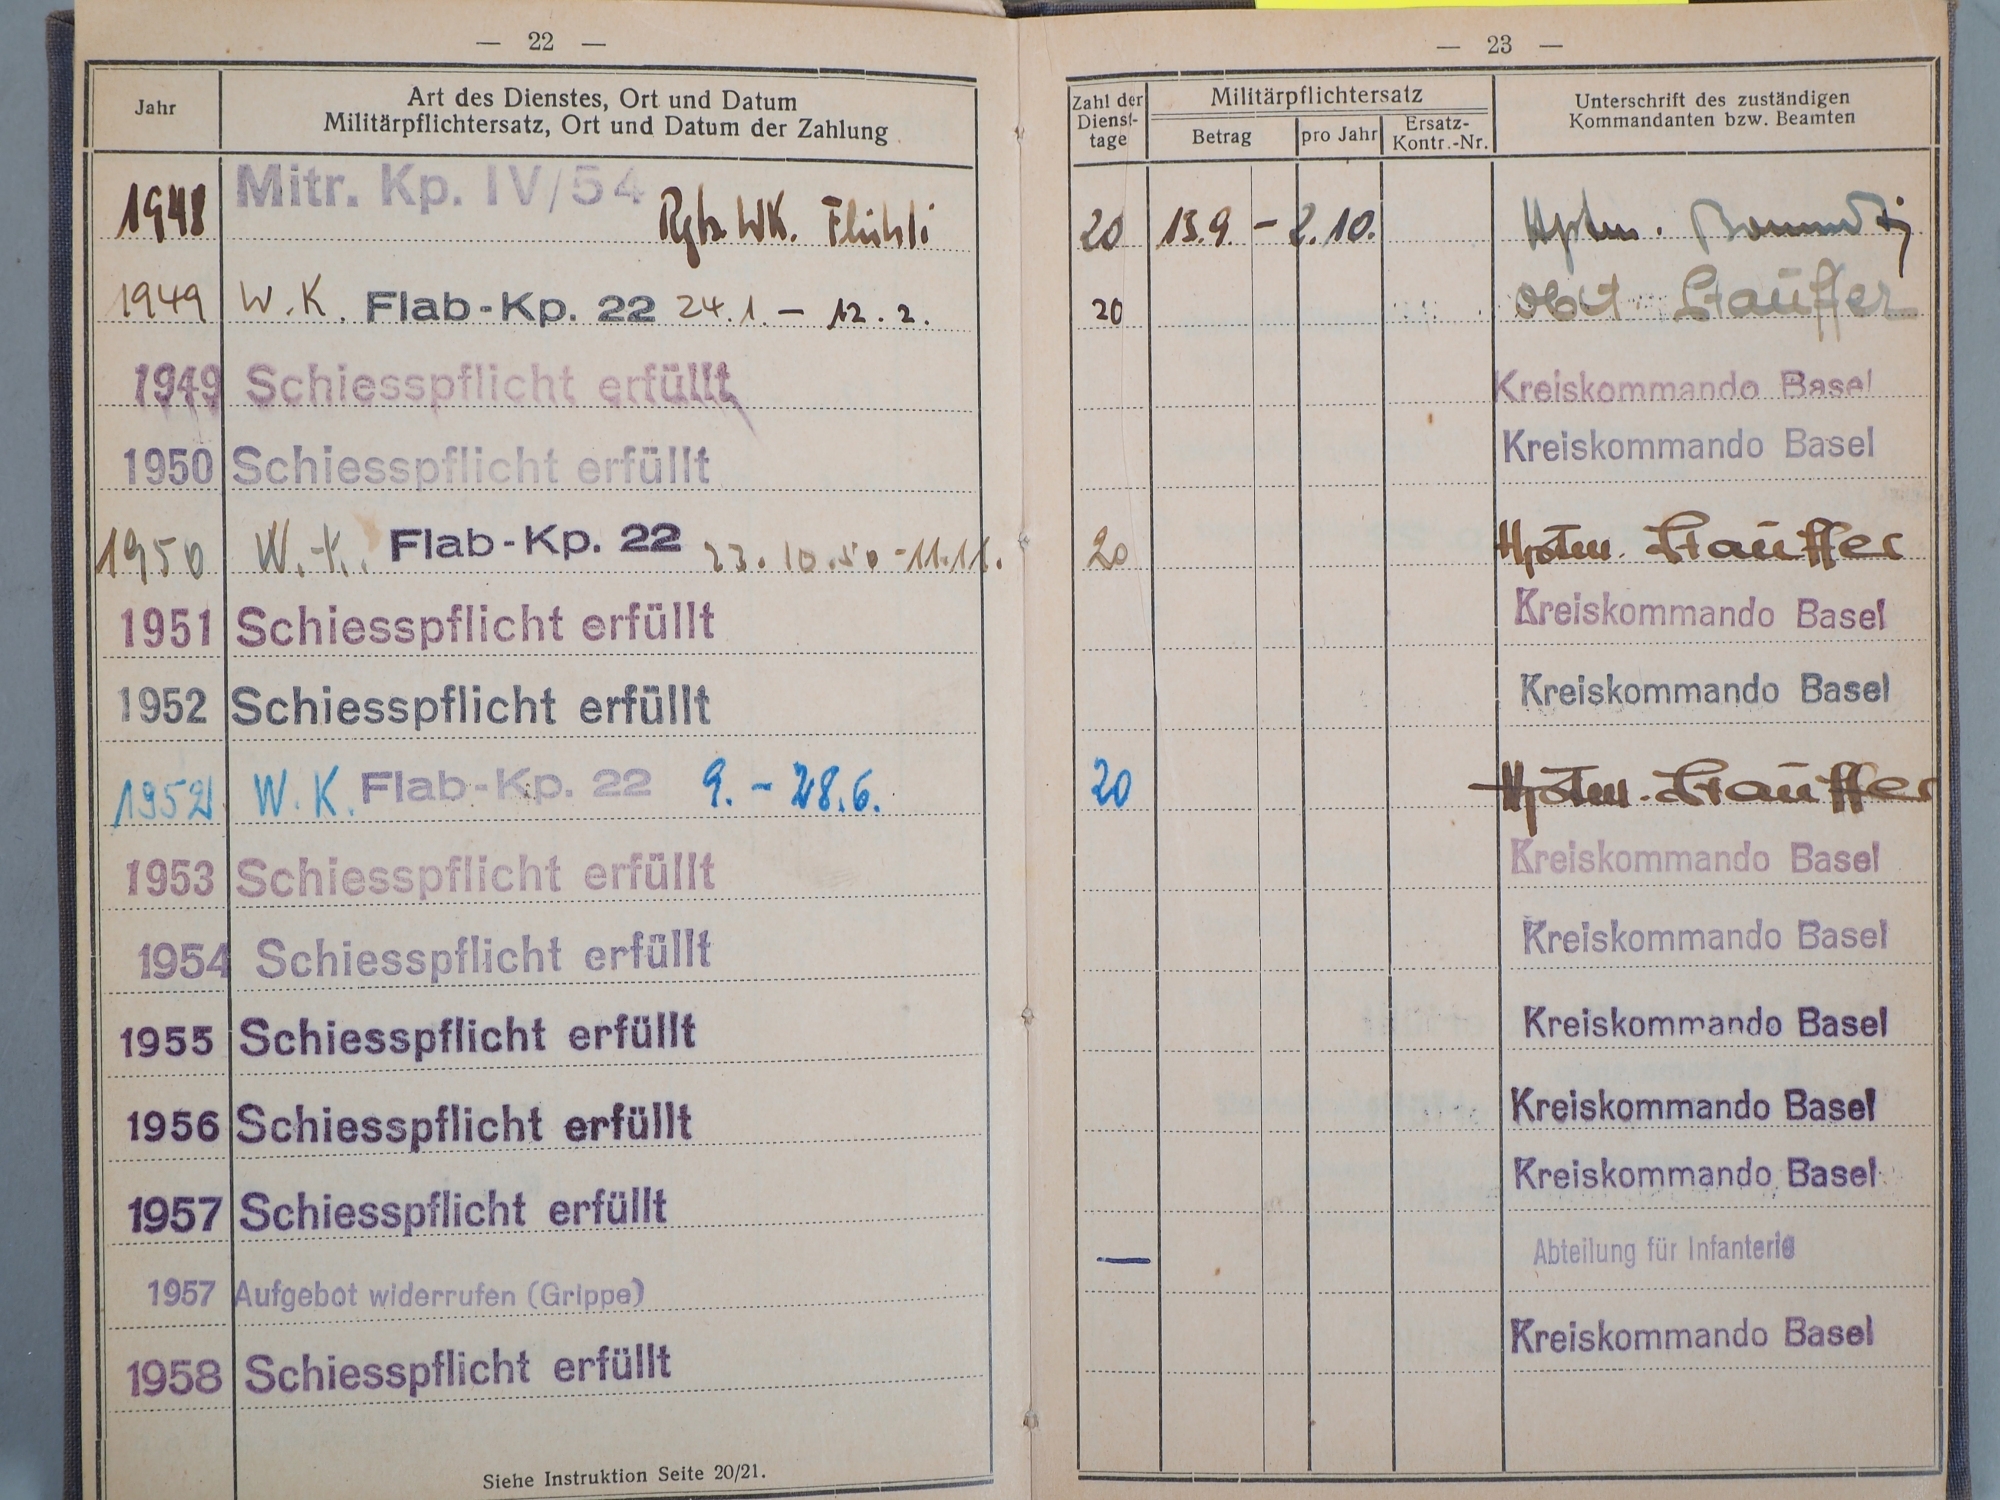 — 22 —
Jahr
Art des Dienstes, Ort und Datum
Militärpflichtersatz, Ort und Datum der Zahlung
1948 Mitr. Kp. IV/54 Rgts. WK. Flühli
1949 W.K. Flab-Kp. 22 24.1. – 12.2.
1949 Schiesspflicht erfüllt
1950 Schiesspflicht erfüllt
1950 W.K. Flab-Kp. 22 23.10.50 - 11.11.
1951 Schiesspflicht erfüllt
1952 Schiesspflicht erfüllt
1952 W.K. Flab-Kp. 22 9. – 28.6.
1953 Schiesspflicht erfüllt
1954 Schiesspflicht erfüllt
1955 Schiesspflicht erfüllt
1956 Schiesspflicht erfüllt
1957 Schiesspflicht erfüllt
1957 Aufgebot widerrufen (Grippe)
1958 Schiesspflicht erfüllt
Siehe Instruktion Seite 20/21.
— 23 —
Zahl der
Dienst-
tage
Militärpflichtersatz
Betrag
pro Jahr
Ersatz-
Kontr.-Nr.
Unterschrift des zuständigen
Kommandanten bzw. Beamten
20 13.9. – 2.10. Hptm.
20 Oblt. Stauffer
Kreiskommando Basel
Kreiskommando Basel
20 Hptm. Stauffer
Kreiskommando Basel
Kreiskommando Basel
20 Hptm. Stauffer
Kreiskommando Basel
Kreiskommando Basel
Kreiskommando Basel
Kreiskommando Basel
Kreiskommando Basel
— Abteilung für Infanterie
Kreiskommando Basel